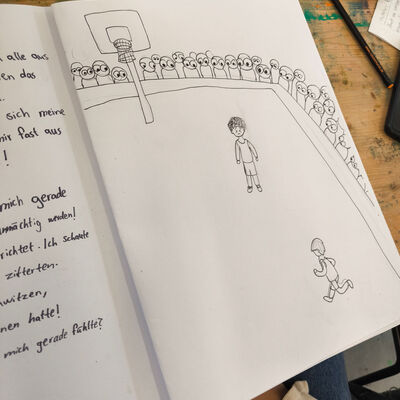 alle aus
das
sich meine
mir fast aus
!
mich gerade
ohnmächtig werden!
richtet. Ich schaute
zitterten.
hwitzen,
nen hatte!
mich gerade fühlte?